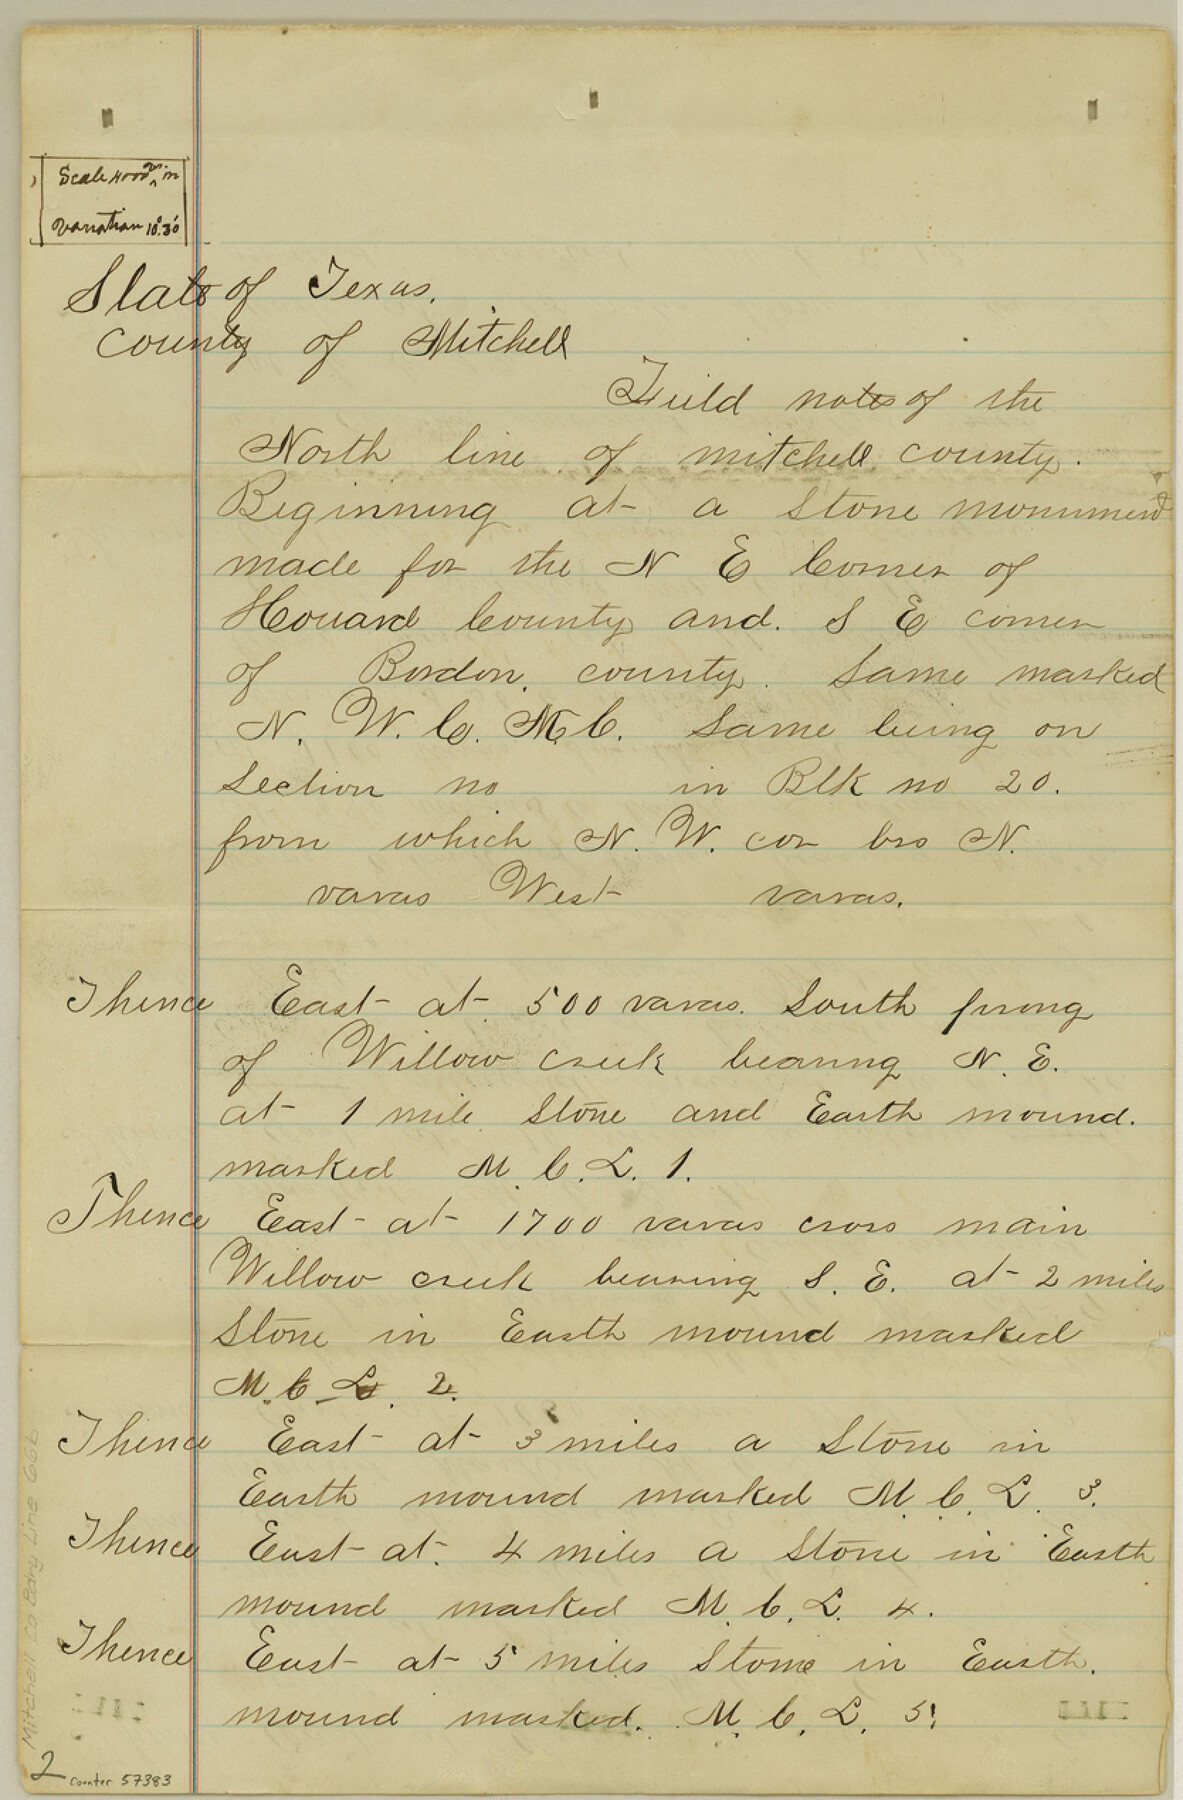 Scale 4000 vrs in
Variation 10°.30'
State of Texas.
County of Mitchell
Field notes of the
North line of mitchell county.
Beginning at a Stone monument
made for the N E Corner of
Houard County and. S E corner
of Bordon. county. Same marked
N. W. C. M. C. Same being on
Section no in Blk no 20.
from which N. W. cor brs N.
varas West varas.
Thence East at 500 varas. South prong
of Willow creek bearing N. E.
at 1 mile Stone and Earth mound.
marked M. C. L. 1.
Thence East at 1700 varas cross main
Willow creek bearing S. E. at 2 miles
Stone in Earth mound marked
M. C. L. 2.
Thence East at 3 miles a Stone in
Earth mound marked M. C. L. 3.
Thence East at. 4 miles a Stone in Earth
mound marked M. C. L. 4.
Thence East at 5 miles Stone in Earth.
mound marked. M. C. L. 5.
Mitchell Co Bdry Line 66b
2
counter 57383